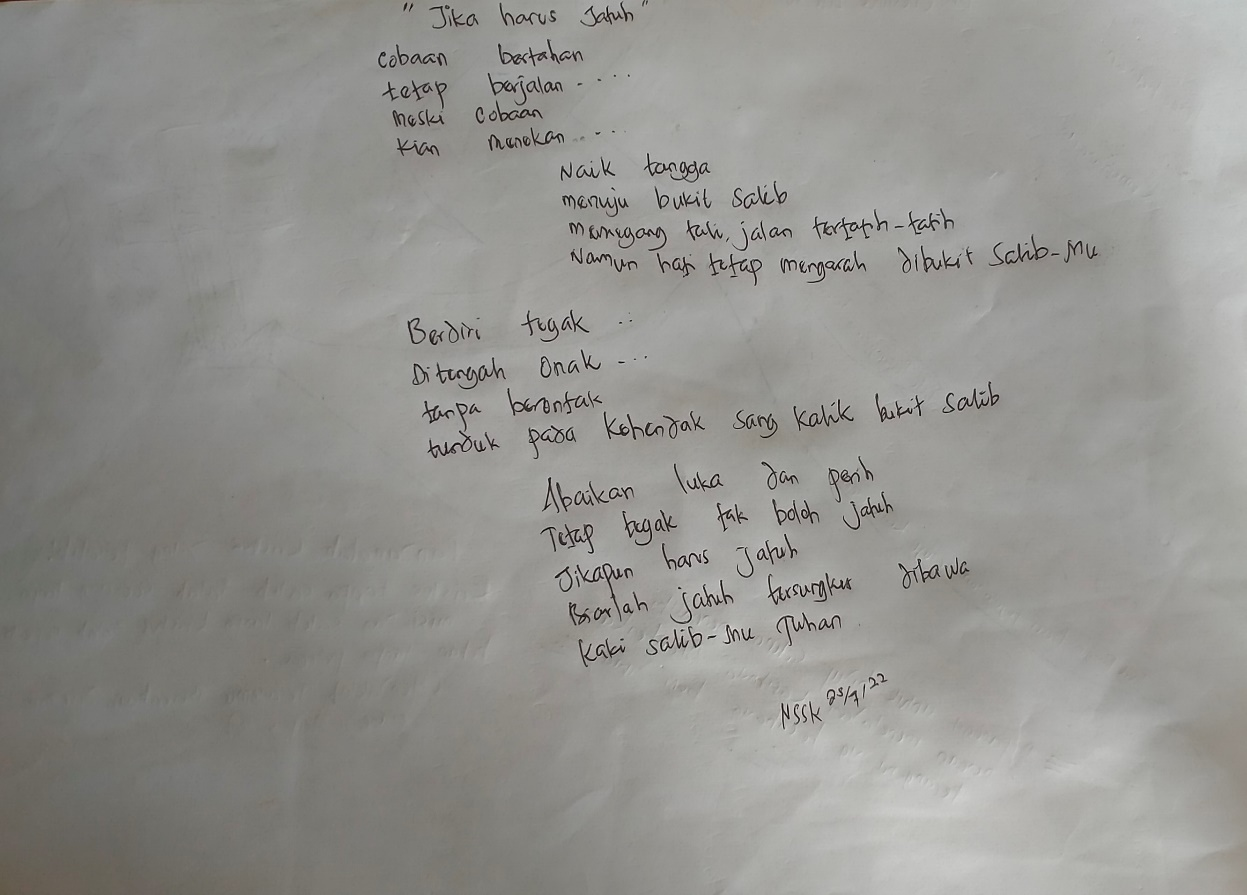 " Jika harus Jatuh "
Cobaan bertahan
tetap berjalan . . . . .
meski cobaan
kian menekan . . . .
Naik tangga
menuju bukit Salib
memegang tali, jalan tertatih-tatih
Namun hati tetap mengarah dibukit Salib-Mu
Berdiri tegak . .
Ditengah Onak . . . .
tanpa berontak
tunduk pada Kehendak sang Kalik bukit Salib
Abaikan luka dan perih
Tetap tegak tak boleh jatuh
Jikapun harus Jatuh
Biarlah jatuh tersungkur dibawa
Kaki salib-Mu Tuhan
NSSK 25/7/22